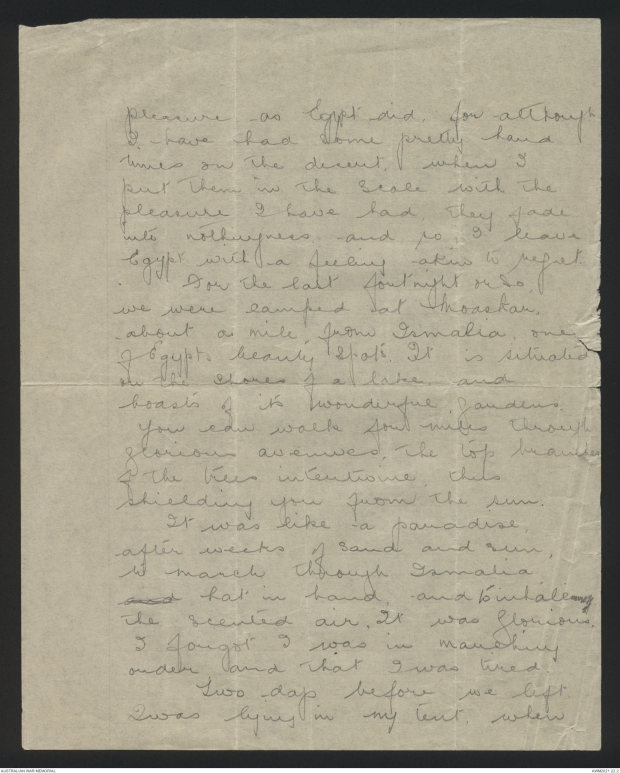 pleasure as Egypt did, for although
I have had some pretty hard
times on the desert, when I
put them in the scale with the
pleasure I have had, they fade
into nothingness and so I leave
Egypt with a feeling akin to regret.
For the last fortnight or so
we were camped at Moaskar,
about a mile from Ismalia, one
of Egypts beauty spots. It is situated
on the shores of a lake and
boasts of its wonderful gardens.
You can walk for miles through
glorious avenues, the top branches
of the trees intertwine, thus
shielding you from the sun.
It was like a paradise,
after weeks of sand and sun,
to march through Ismalia
and hat in hand, and inhale
the scented air. It was glorious.
I forgot I was in marching
order and that I was tired.
Two days before we left
I was lying in my tent, when
AUSTRALIAN WAR MEMORIAL